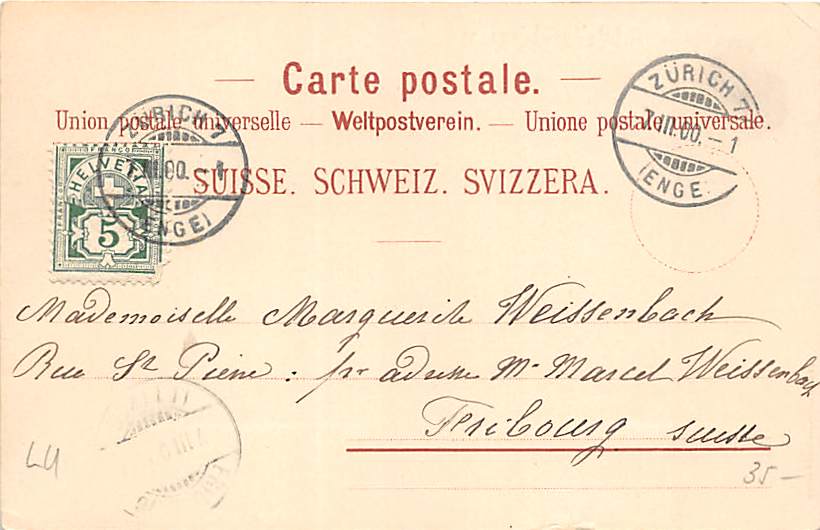 Carte postale.
Union postale universelle — Weltpostverein. — Unione postale universale.
SUISSE. SCHWEIZ. SVIZZERA.
ZÜRICH 7
III.00. – 1
(ENGE)
ZÜRICH 7
7.III.00. – 1
(ENGE)
FRANCO
HELVETIA
5
Mademoiselle Marguerite Weissenbach
Rue St Pierre : pr adresse Mr Marcel Weissenbach
Fribourg Suisse
35 –